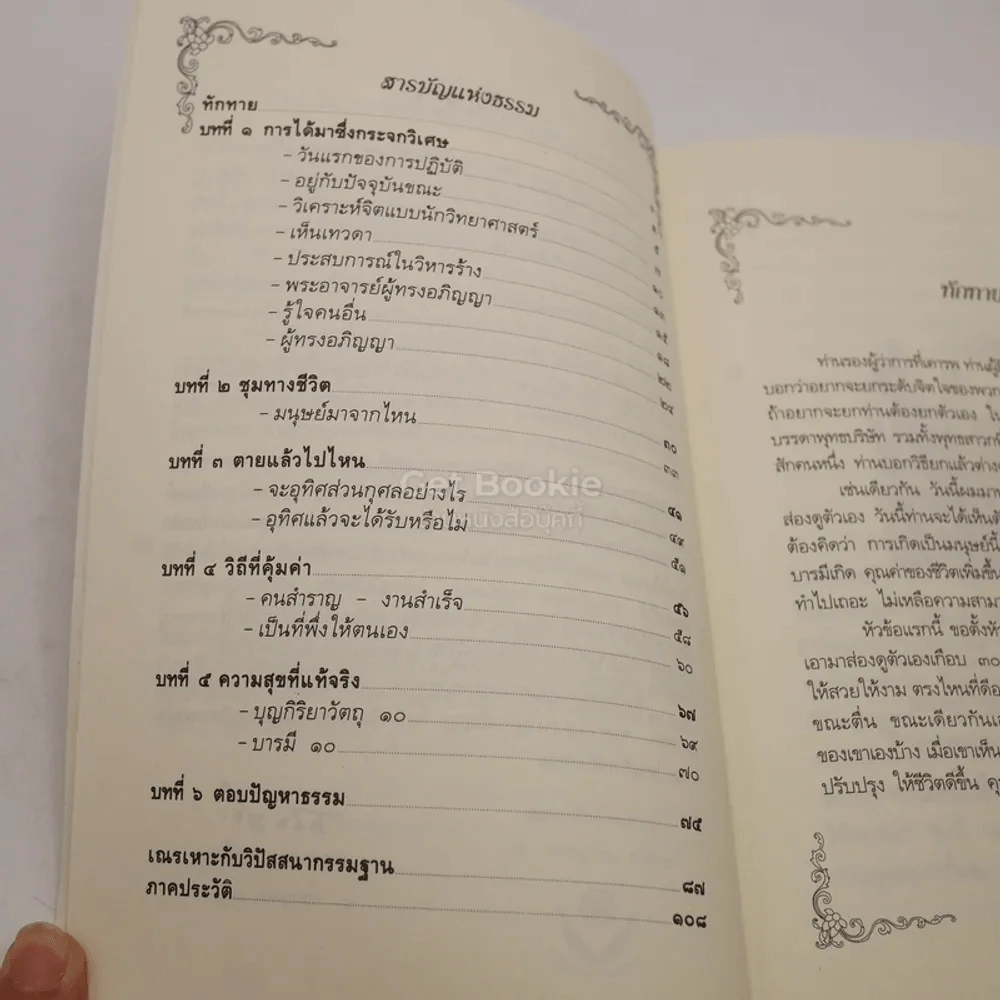 สารบัญแห่งธรรม
ทักทาย
บทที่ ๑ การได้มาซึ่งกระจกวิเศษ
- วันแรกของการปฏิบัติ
- อยู่กับปัจจุบันขณะ
- วิเคราะห์จิตแบบนักวิทยาศาสตร์
- เห็นเทวดา
- ประสบการณ์ในวิหารร้าง
- พระอาจารย์ผู้ทรงอภิญญา
- รู้ใจคนอื่น
- ผู้ทรงอภิญญา
บทที่ ๒ ชุมทางชีวิต
- มนุษย์มาจากไหน
บทที่ ๓ ตายแล้วไปไหน
- จะอุทิศส่วนกุศลอย่างไร
- อุทิศแล้วจะได้รับหรือไม่
บทที่ ๔ วิถีที่คุ้มค่า
- คนสำราญ - งานสำเร็จ ๕๘
- เป็นที่พึ่งให้ตนเอง ๖๐
บทที่ ๕ ความสุขที่แท้จริง ๖๗
- บุญกิริยาวัตถุ ๑๐ ๖๙
- บารมี ๑๐ ๗๐
บทที่ ๖ ตอบปัญหาธรรม ๗๕
เณรเหาะกับวิปัสสนากรรมฐาน ๘๗
ภาคประวัติ ๑๐๘
Get Bookie
ทักทาย
ท่านรองผู้ว่าการที่เคารพ
บอกว่าอยากจะยกระดับจิตใจของพวก
ถ้าอยากจะยกท่านต้องยกตัวเอง
บรรดาพุทธบริษัท รวมทั้งพุทธสาวก
สักคนหนึ่ง ท่านบอกวิธียกแล้วต่าง
เช่นเดียวกัน วันนี้ผมมา
ส่องดูตัวเอง วันนี้ท่านจะได้เห็น
ต้องคิดว่า การเกิดเป็นมนุษย์นี้
บารมีเกิด คุณค่าของชีวิตเพิ่มขึ้น
ทำไปเถอะ ไม่เหลือความสามา
หัวข้อแรกนี้ ขอตั้ง
เอามาส่องดูตัวเองเกือบ ๓๐
ให้สวยให้งาม ตรงไหนที่ดี
ขณะตื่น ขณะเดียวกัน
ของเขาเองบ้าง เมื่อเขาเห็น
ปรับปรุง ให้ชีวิตดีขึ้น